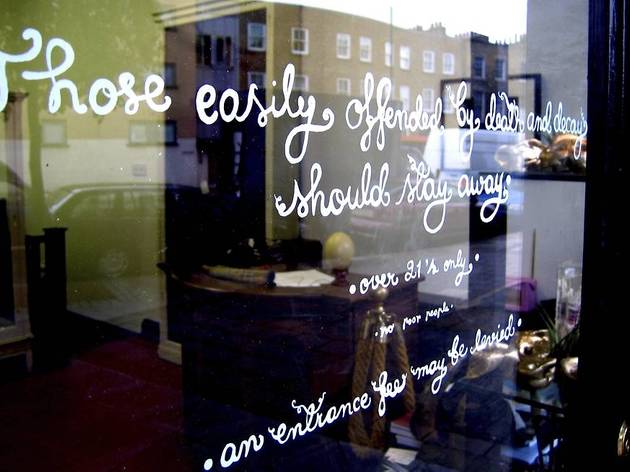 Those easily offended by death and decay
should stay away.
• over 21's only •
• no poor people •
• an entrance fee may be levied •